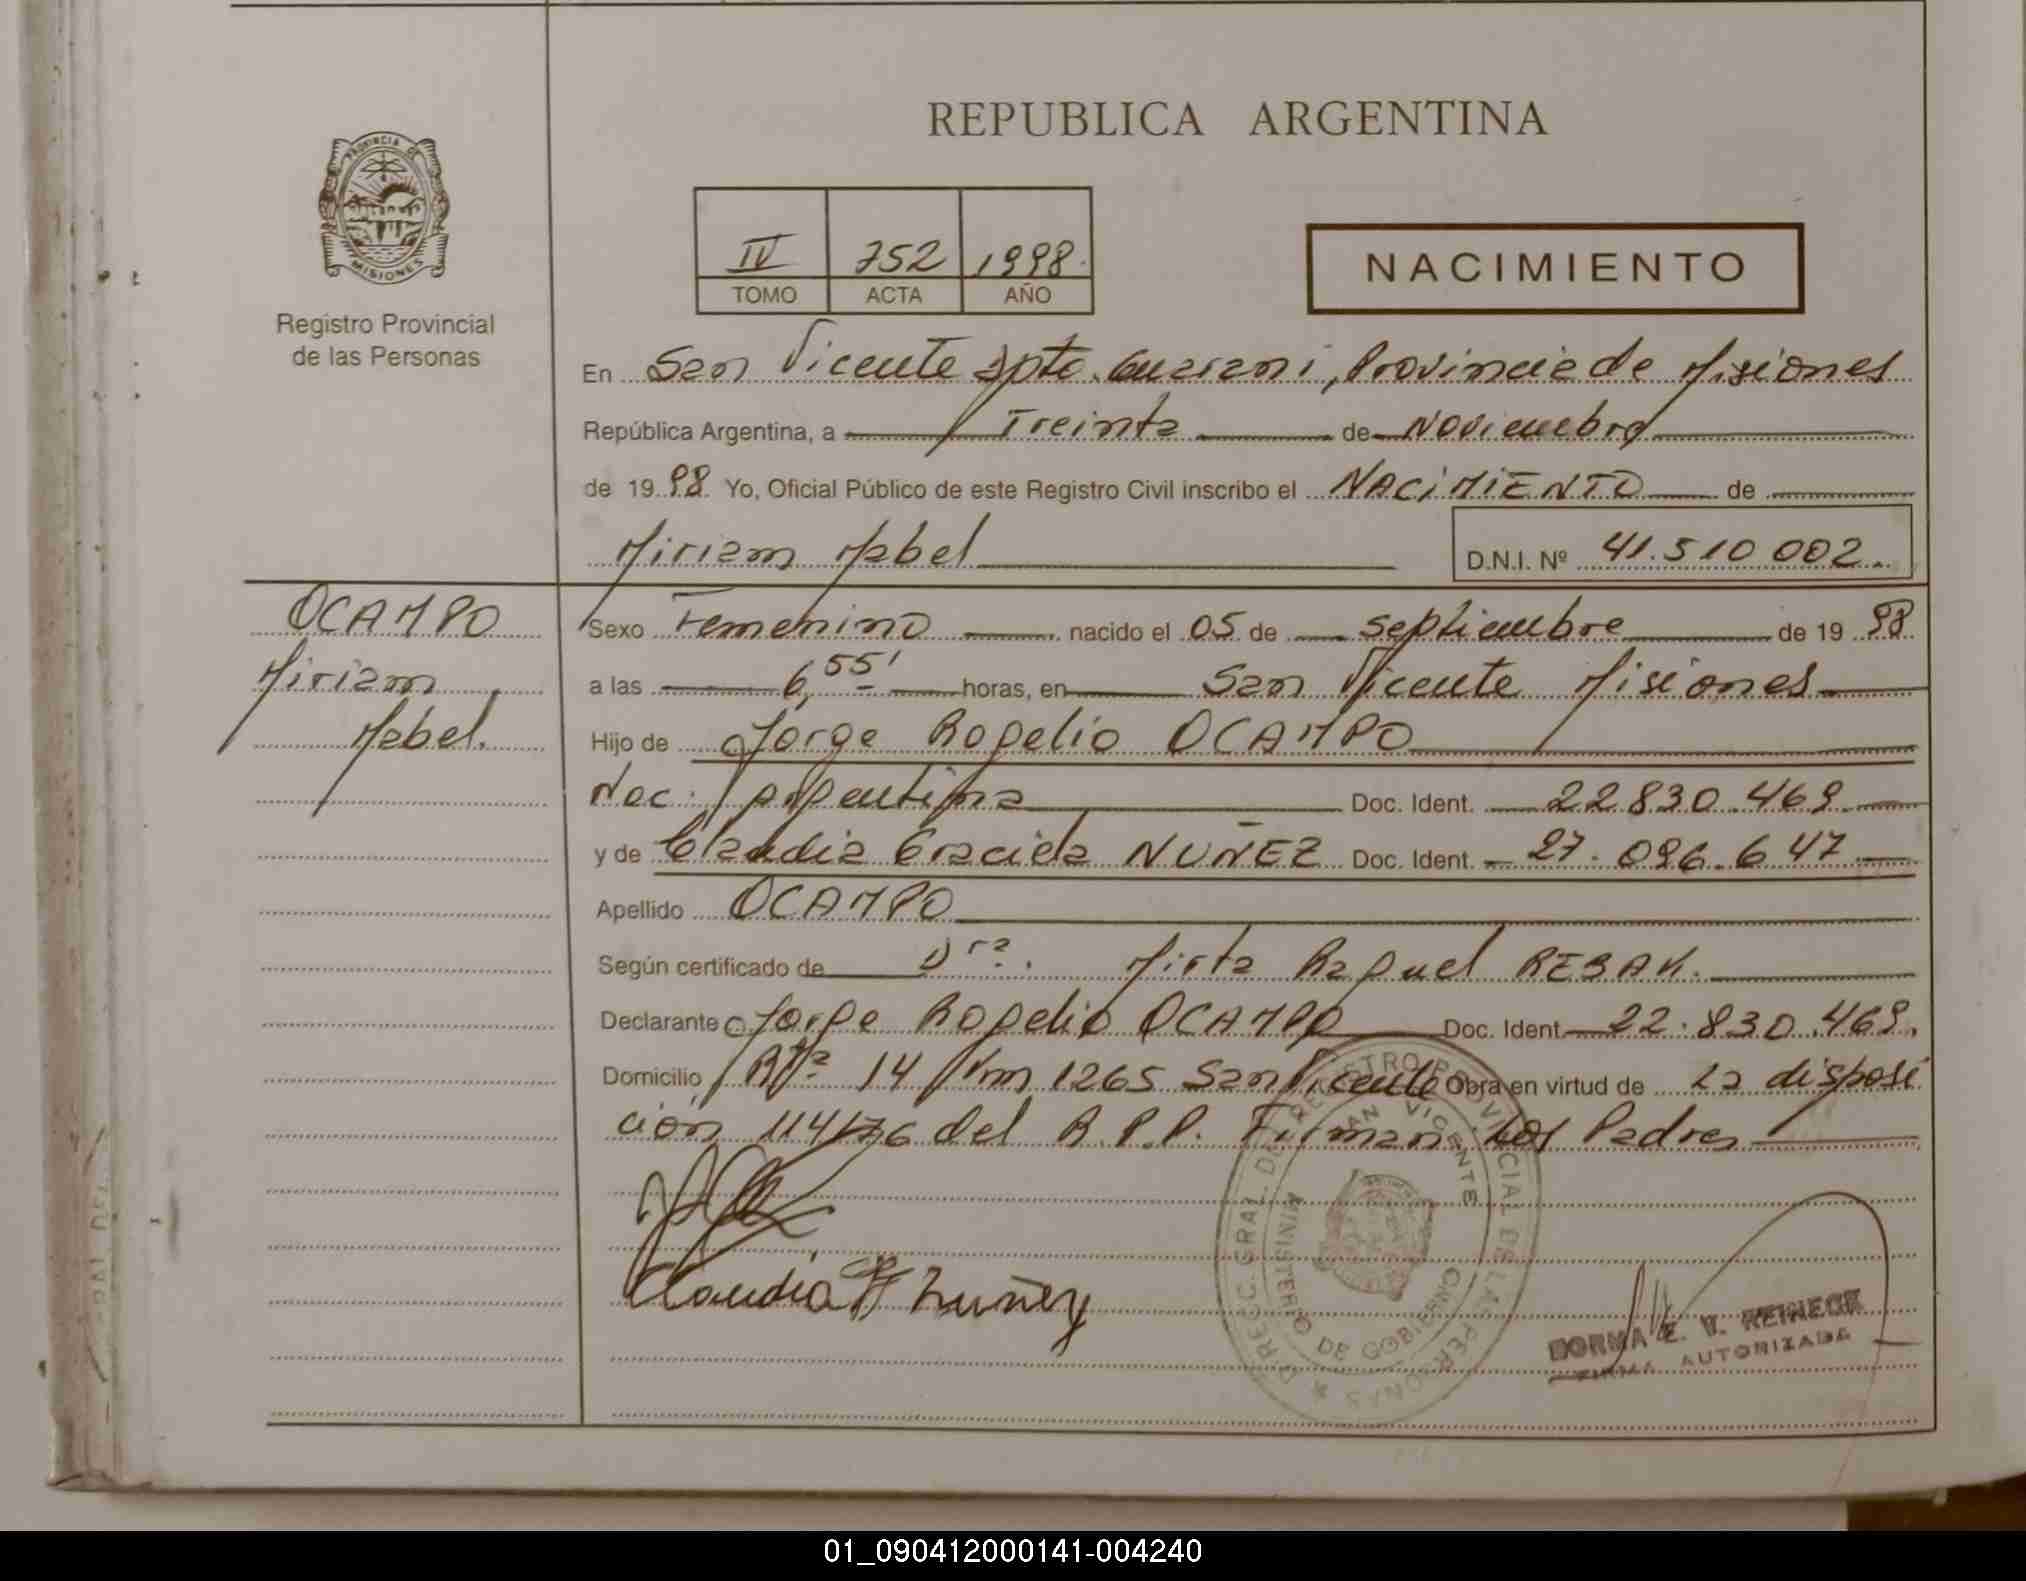 REPUBLICA ARGENTINA
PROVINCIA DE
MISIONES
Registro Provincial
de las Personas
IV 752 1998
TOMO ACTA AÑO
NACIMIENTO
En San Vicente Dpto. Guarani, Provincia de Misiones
República Argentina, a Treinta de Noviembre
de 1998 Yo, Oficial Público de este Registro Civil inscribo el NACIMIENTO de
Miriam Mabel D.N.I. Nº 41.510 002
OCAMPO
Miriam
Mabel.
Sexo Femenino nacido el 05 de septiembre de 1998
a las 6,55' horas, en San Vicente Misiones
Hijo de Jorge Rogelio OCAMPO
Nac. Argentina Doc. Ident. 22830.469
y de Claudia Graciela NUÑEZ Doc. Ident. 27.096.647
Apellido OCAMPO
Según certificado de Dra. Mirta Raquel
Declarante Jorge Rogelio OCAMPO Doc. Ident. 22.830.469.
Domicilio Rta 14 Km 1265 San Vicente Obra en virtud de La disposi
ción 114/76 del R.P.P. Firman Los Padres
Claudia G Nuñez
DIRECC. GRAL. DE REGISTRO PROVINCIAL DE LAS PERSONAS
SAN VICENTE
MINISTERIO DE GOBIERNO
DORMA E. V. REINECK
FIRMA AUTORIZADA
01_090412000141-004240